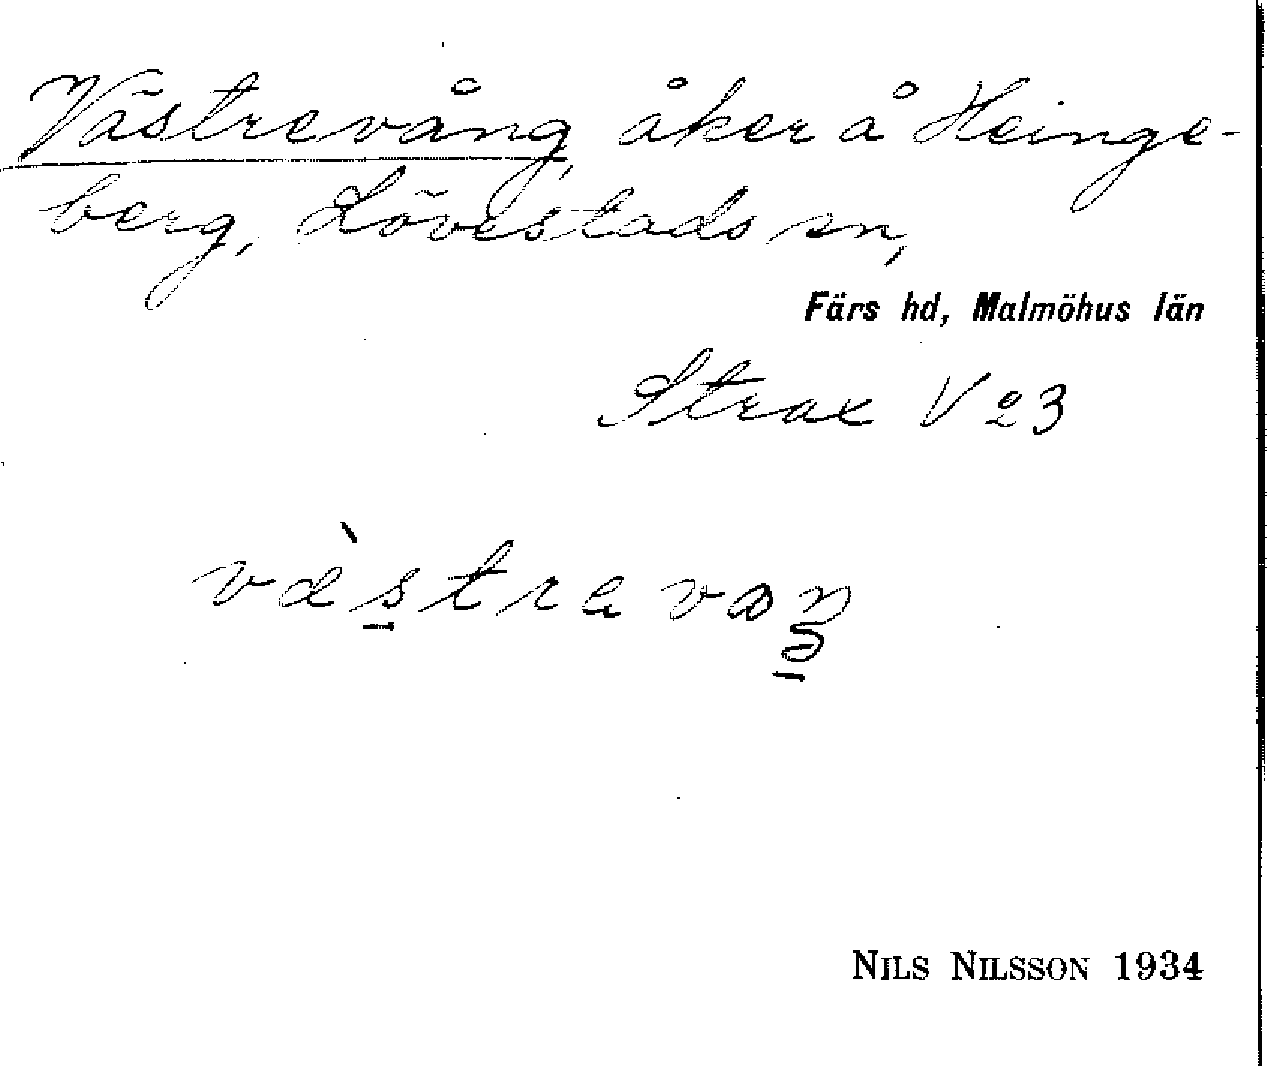 Västrevång, åker å Heinge-
berg, Lövestads sn,
Färs hd, Malmöhus län
Strax V 23
NILS NILSSON 1934